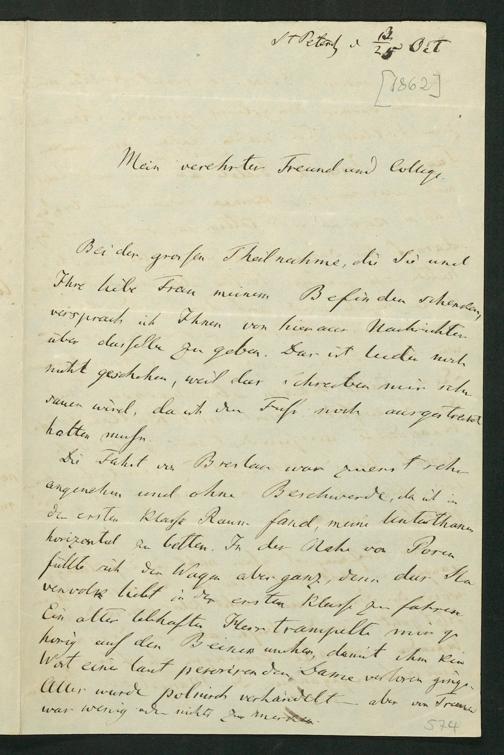 St Petersb d 13/25 Oct
[1862]
Mein verehrter Freund und College.
Bei der grossen Theilnahme, die Sie und
Ihre liebe Frau meinem Befinden schenken,
versprach ich Ihnen von hier aus Nachrichten
über dasselbe zu geben. Das ist leider noch
nicht geschehen, weil das Schreiben mir sehr
sauer wird, da ich den Fuss noch ausgestreckt
halten muss.
Die Fahrt von Breslau war zuerst sehr
angenehm und ohne Beschwerde, da ich in
der ersten Klasse Raum fand, meine Unterthanen
horizontal zu betten. In der Nähe von Posen
füllte sich der Wagen aber ganz, denn das Sla
venvolk liebt in der ersten Klasse zu fahren.
Ein alter lebhafter Herr trampelte mir ge
hörig auf den Beinen umher, damit ihm kein
Wort einer laut perorirenden Dame verloren ginge.
Alles wurde polnisch verhandelt – aber von
war wenig oder nichts zu merken.
574